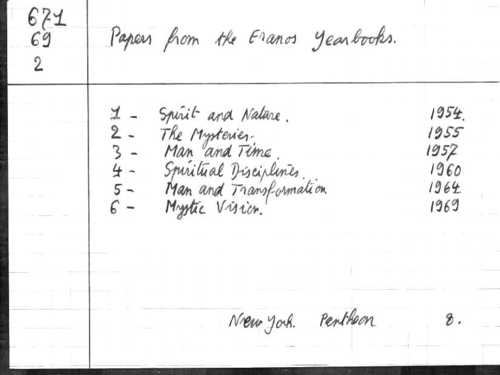 671
69
2
Papers from the Eranos Yearbooks.
1 - Spirit and Nature. 1954.
2 - The Mysteries. 1955
3 - Man and Time. 1957
4 - Spiritual Disciplines. 1960
5 - Man and Transformation 1964
6 - Mystic Vision. 1969
New York. Pentheon 8.